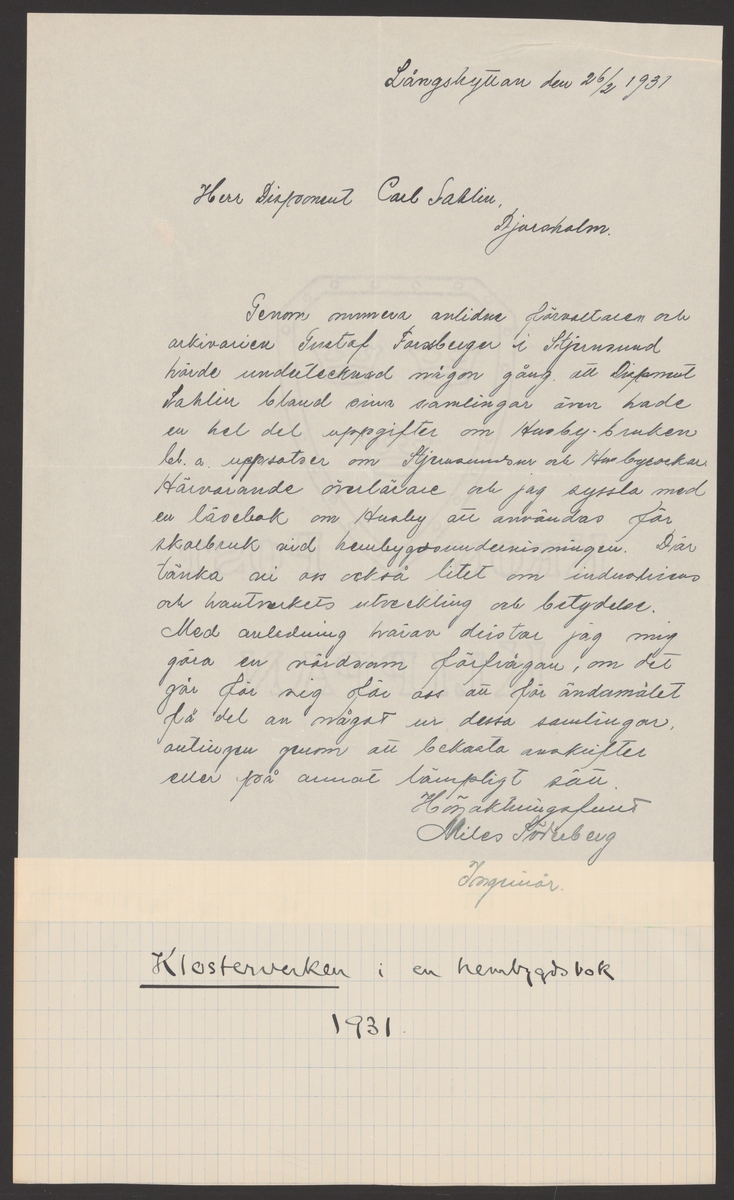 Långshyttan den 26/2 1931
Herr Disponent Carl Sahlin,
Djursholm.
Genom numera avlidne förvaltaren och
arkivarien Gustaf Forsberger i Stjernsund
hörde undertecknad någon gång att Disponent
Sahlin bland sina samlingar även hade
en hel del uppgifter om Husby-bruken
bl. a. uppsatser om Stjernsundsur och Husbyockar.
Härvarande överlärare och jag syssla med
en läsebok om Husby att användas för
skolbruk vid hembygdsundervisningen. Där
tänka vi oss också litet om industriens
och hantverkets utveckling och betydelse.
Med anledning härav dristar jag mig
göra en vördsam förfrågan, om det
går för sig för oss att för ändamålet
få del av något ur dessa samlingar,
antingen genom att bekosta avskrifter
eller på annat lämpligt sätt.
Högaktningsfullt
Miles Söderberg
Ingeniör.
Klosterverken i en hembygdsbok
1931.